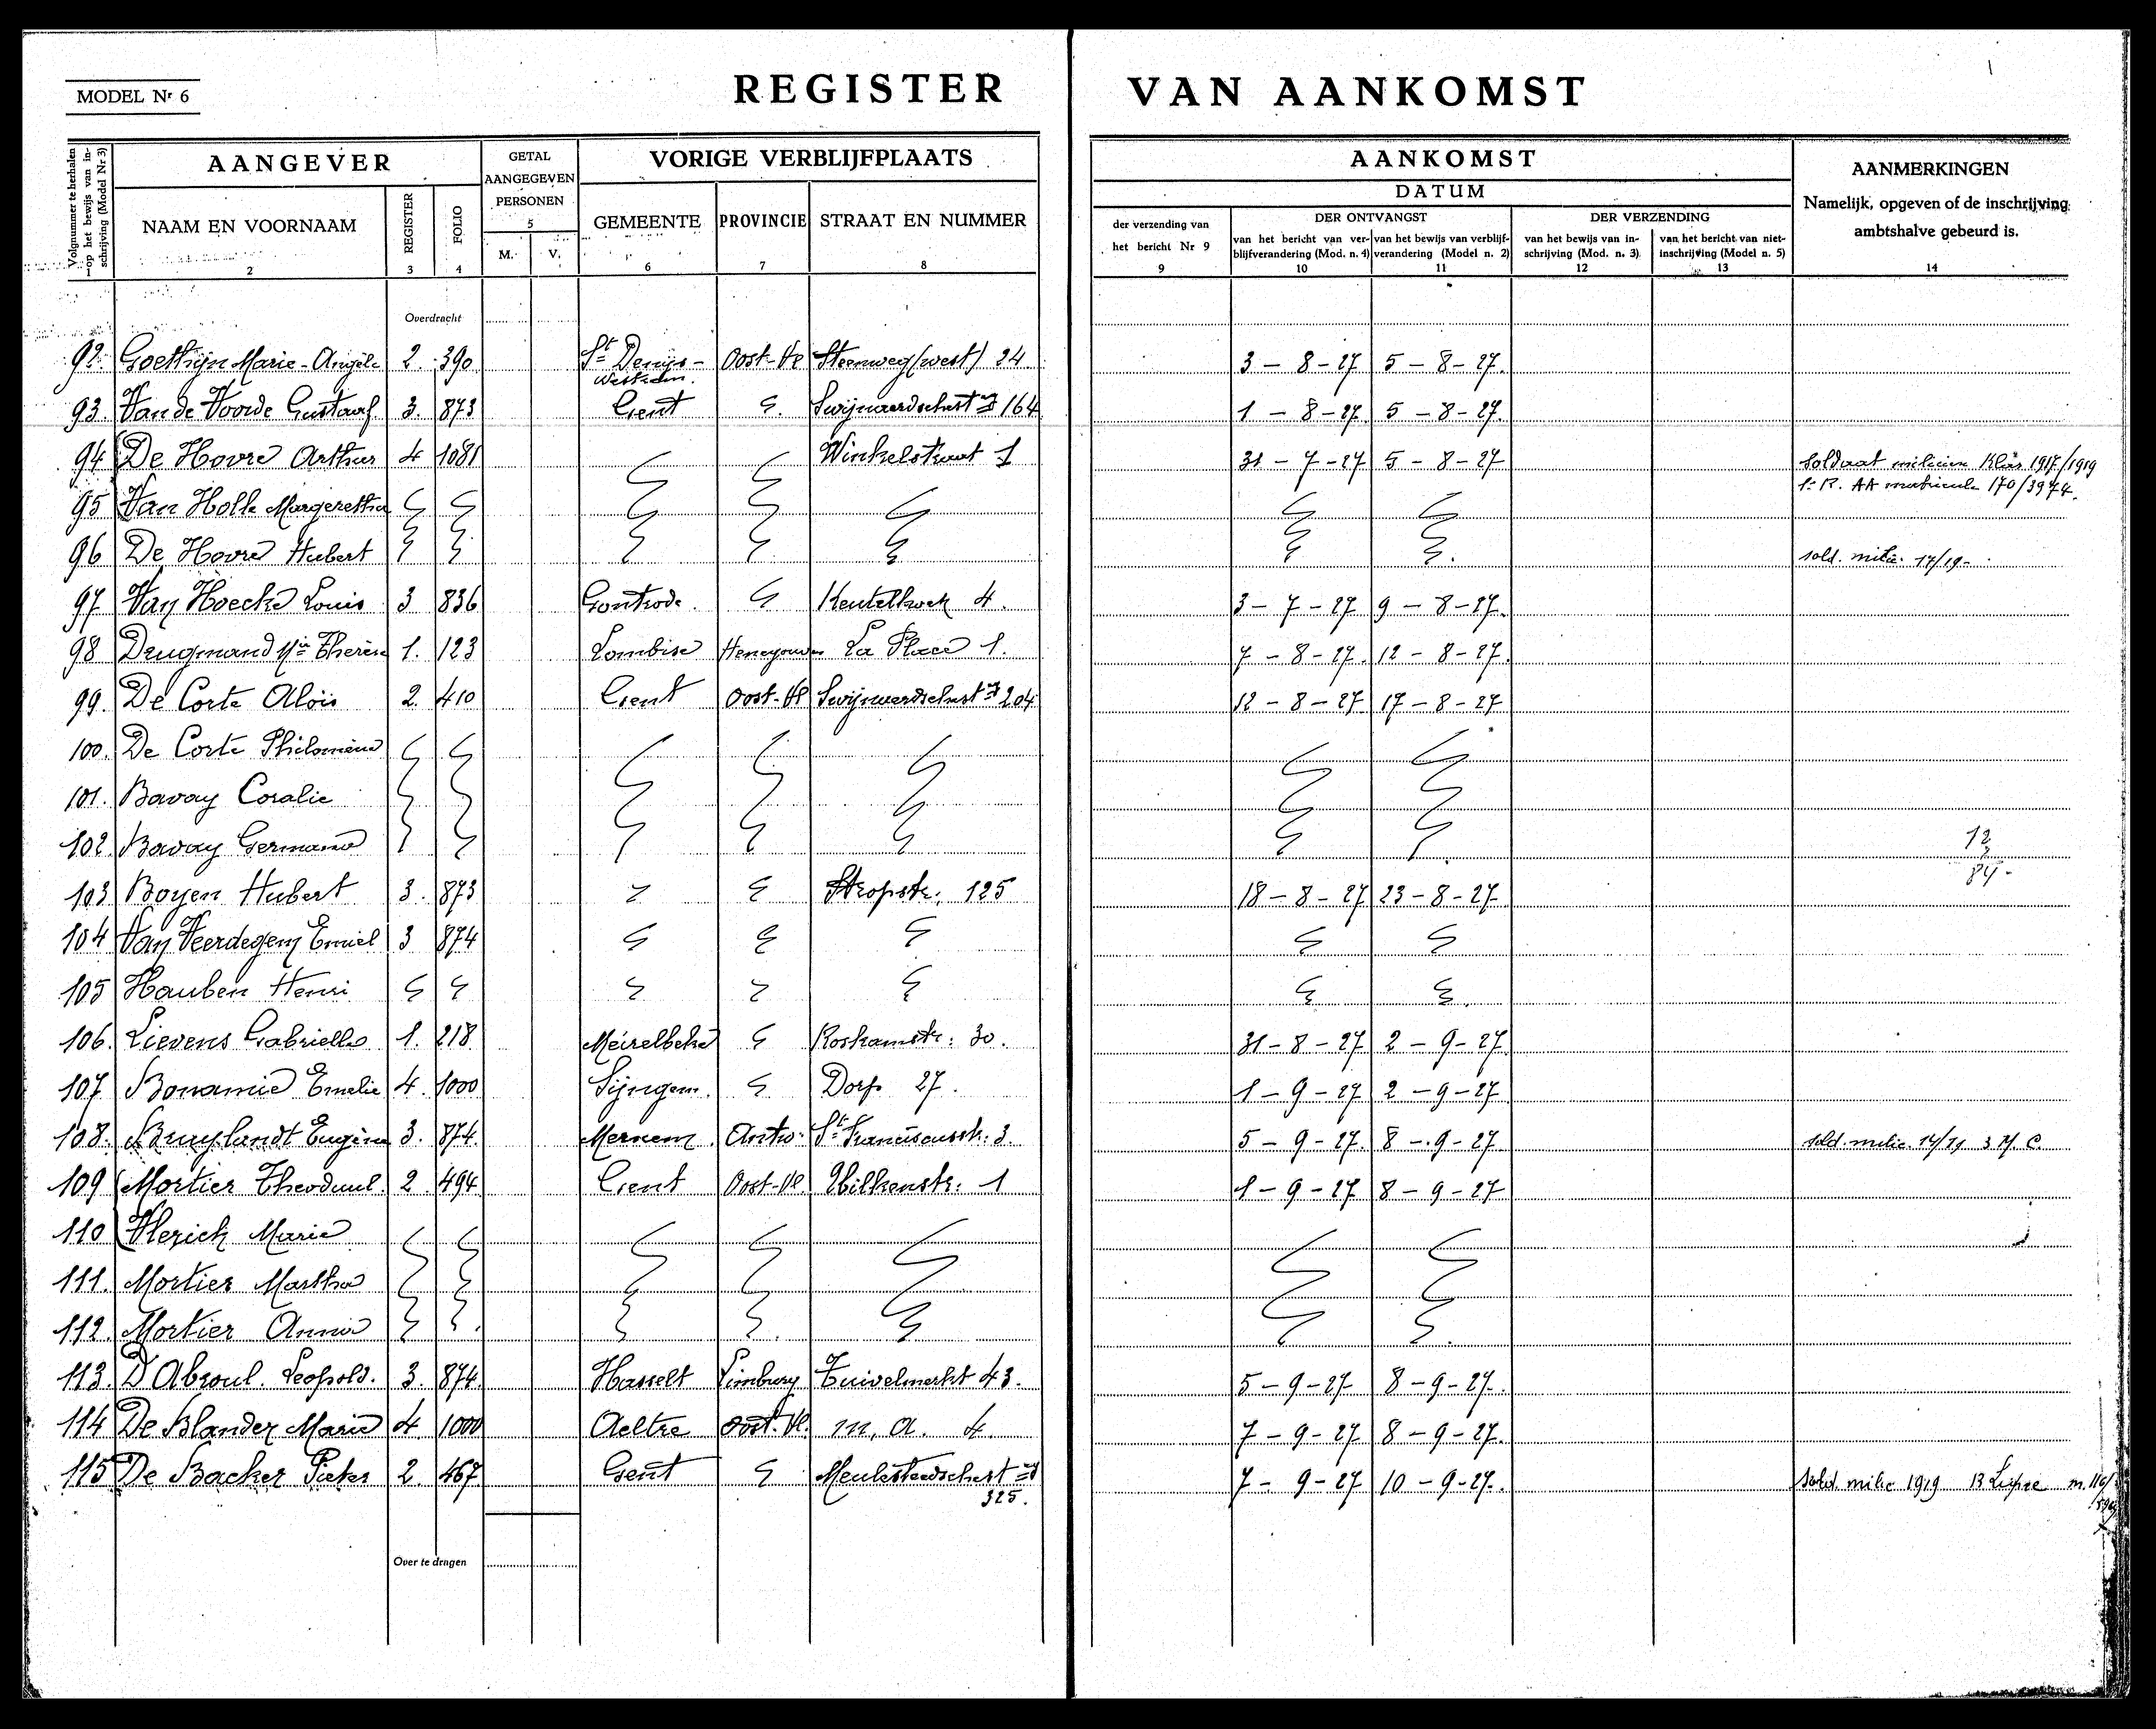 MODEL Nr 6
REGISTER VAN AANKOMST
Volgnummer te herhalen op het bewijs van inschrijving (Model Nr 3)
AANGEVER
NAAM EN VOORNAAM
2
REGISTER
3
FOLIO
4
GETAL
AANGEGEVEN
PERSONEN
5
M. V.
VORIGE VERBLIJFPLAATS
GEMEENTE
6
PROVINCIE
7
STRAAT EN NUMMER
8
AANKOMST
DATUM
der verzending van
het bericht Nr 9
9
DER ONTVANGST
van het bericht van ver-
blijfverandering (Mod. n. 4)
10
van het bewijs van verblijf-
verandering (Model n. 2)
11
DER VERZENDING
van het bewijs van in-
schrijving (Mod. n. 3)
12
van het bericht van niet-
inschrijving (Model n. 5)
13
AANMERKINGEN
Namelijk, opgeven of de inschrijving
ambtshalve gebeurd is.
14
Overdracht
92. Goethijn Marie-Angèle 2. 390 St Denijs- Oost-Vl Steenweg (west) 24 3 - 8 - 27 5 - 8 - 27.
Westrem.
93. Van de Voorde Gustaaf 3. 873 Gent 164 1 - 8 - 27 5 - 8 - 27.
94 De Hovre Arthur 4 1081 Winkelstraat 1 31 - 7 - 27 5 - 8 - 27 Soldaat milicien Klas 1917/1919
AA matricule 170/3974.
95 Van Holle Margeretha
96 De Hovre Hubert sold. milic. 17/19 -
97 Van Hoecke Louis 3 836 Gontrode. 4. 3 - 7 - 27 9 - 8 - 27.
98 Deugmand Mie Therèse 1. 123 Lombise Henegouwen La Place 1. 7 - 8 - 27. 12 - 8 - 27.
99. De Corte Aloïs 2. 410 Gent Oost-Vl 204 12 - 8 - 27 17 - 8 - 27
100. De Corte Philomène
101. Bavay Coralie
102. Bavay Germana 12
103 Boyen Hubert 3. 873 Stropstr. 125 18 - 8 - 27 23 - 8 - 27. 84 -
104 Van Veerdegem Emiel 3 874
105 Hauben Henri
106. Lievens Gabrielle 1. 218. Meirelbeke Roskamstr: 30. 31 - 8 - 27 2 - 9 - 27
107 Bonamie Emelie 4. 1000 Sijngem. Dorp 27. 1 - 9 - 27 2 - 9 - 27
108. Bruylandt Eugène 3. 874. Merxem. Antw. St Franciscusstr: 3. 5 - 9 - 27. 8 - 9 - 27 sold. milic. 3
109 Mortier Theoduul. 2. 494. Gent Oost-Vl. 1 1 - 9 - 27 8 - 9 - 27
110 Vlerick Marie
111. Mortier Martha
112. Mortier Anna
113. D'Absoul. Leopold. 3. 874. Hasselt Limburg Zuivelmarkt 43. 5 - 9 - 27 8 - 9 - 27.
114 De Blander Marie 4. 1000 Aeltre Oost-Vl. m, a. 4. 7 - 9 - 27 8 - 9 - 27.
115 De Backer Pieter 2 467 Gent 7 - 9 - 27 10 - 9 - 27. Sold. milic 1919 13
325.
Over te dragen